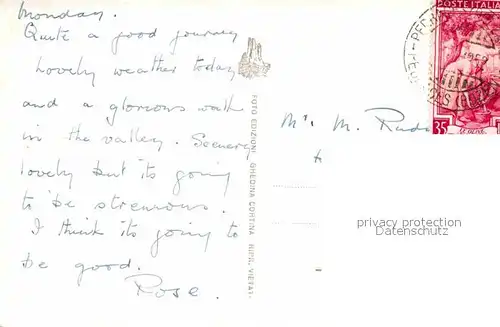 Monday.
Quite a good journey
Lovely weather today
and a glorious walk
in the valley. Scenery
lovely but its going
to be strenuous.
I think its going to
be good.
Rose.
FOTO EDIZIONI GHEDINA CORTINA RIPR. VIETAT.
POSTE ITALIA
35
M. Rudd
privacy protection
Datenschutz